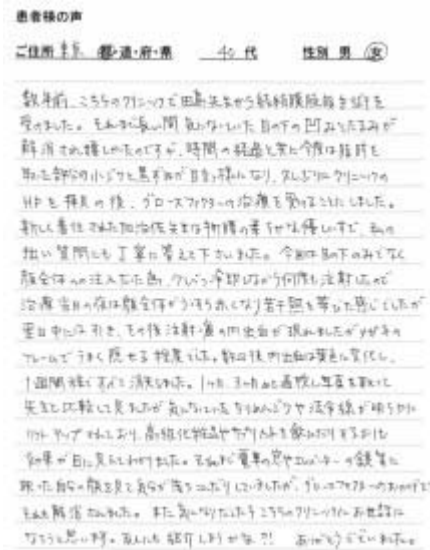 患者様の声
ご住所 東京 都・道・府・県 40代 性別 男 女
数年前、こちらのクリニックで田島先生から経結膜脱脂を
受けました。それまで長い間気になっていた目の下の凹みとたるみが
解消され嬉しかったのですが、時間の経過と共に今度は脂肪を
取った部分の小ジワと黒ずみが目立つ様になり、久しぶりにクリニックの
HPを拝見の後、グロースファクターの治療を受けることにしました。
新しく着任された加治佐先生は物腰の柔らかな優しい方で、私の
拙い質問にも丁寧に答えて下さいました。今回は目の下のみでなく
顔全体への注入だった為、冷却しながら何度も注射したので
治療当日の夜は顔全体がうっすら赤くなり若干熱を帯びた感じでしたが
翌日中には引き、その後注射痕の内出血が現れましたがメガネの
フレームでうまく隠せる程度でした。数日後内出血は黄色に変化し、
1週間後すべて消失しました。1ヶ月、3ヶ月と通院し写真を
先生と比較して見ましたが気になっていたちりめんジワや法令線が明らかに
リフトアップされており、高級化粧品やサプリメントを飲んだりするよりも
効果が目に見えてわかりました。それまで電車の窓やエレベーターの鏡等に
映った自分の顔を見て気分が落ち込んだりしていましたが、グロースファクターのおかげで
それも解消されました。また気になりだしたらこちらのクリニックにお世話に
なろうと思います。友人にも紹介しようかな?! ありがとうございました。